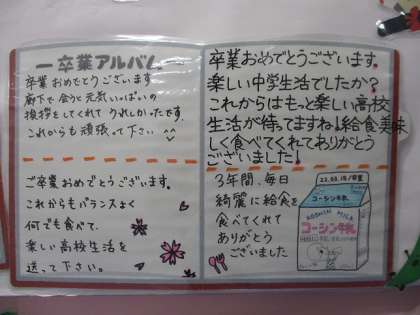 ー卒業アルバムー
卒業おめでとうございます
廊下で会うと元気いっぱいの
挨拶をしてくれてうれしかったです。
これからも頑張って下さい
ご卒業おめでとうございます。
これからもバランスよく
何でも食べて、
楽しい高校生活を
送って下さい。
卒業おめでとうございます。
楽しい中学生活でしたか?
これからはもっと楽しい高校
生活が待ってますね!給食美味
しく食べてくれてありがとう
ございました!
3年間、毎日
綺麗に給食を
食べてくれて
ありがとう
ございました
KOSHIN MILK
コーシン牛乳